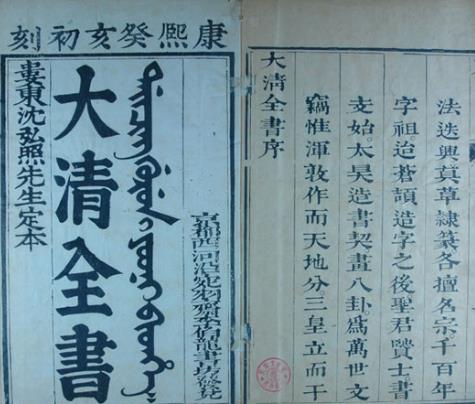 康熙癸亥初刻
婁東沈弘照先生定本
大清全書
ᡩᠠᡳᠴᡳᠩ ᡤᡠᡵᡠᠨ ᡳ ᠶᠣᠣᠨᡳ ᠪᡳᡨᡥᡝ
京都西河沿宛羽齋李伯龍書房發兌
大清全書序
竊惟渾敦作而天地分。三皇立而干
支始。太昊造書契畫八卦。爲萬世文
字祖。迨蒼頡造字之後聖君賢士書
法迭興。真草隸篆各擅名宗。千百年